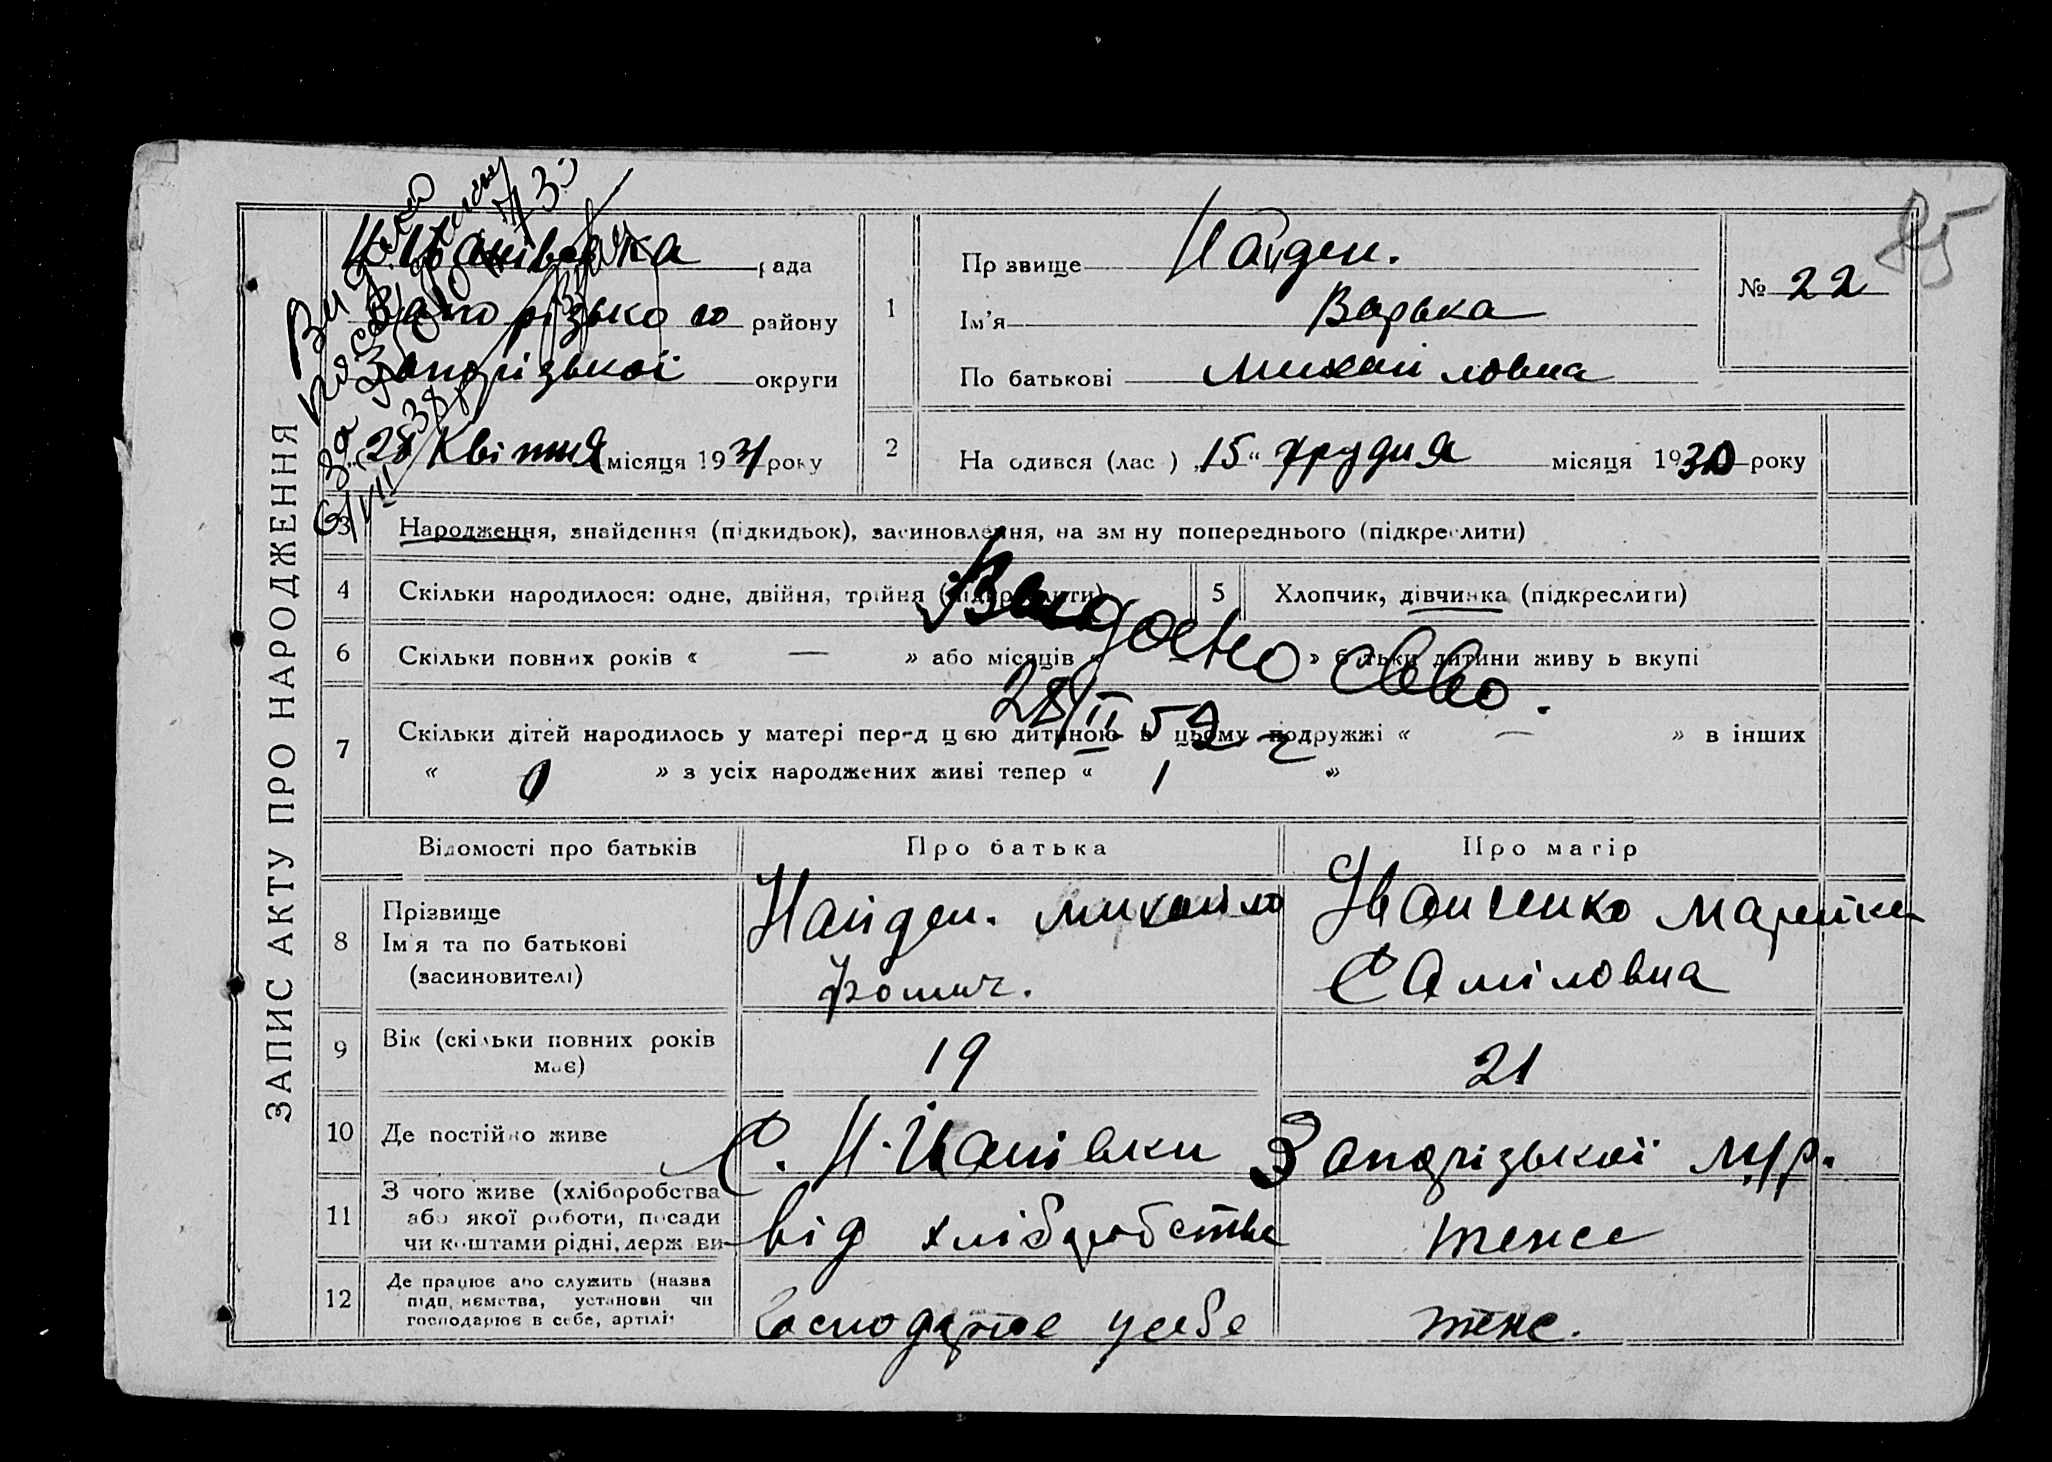 85
ЗАПИС АКТУ ПРО НАРОДЖЕННЯ
рада
Запорізького району
Запорізької округи
28 Квітня місяця 1931 року
1
Пр звище Найден.
Ім’я Варька
По батькові Михайловна
№ 22
2
На одився (лас ) „15“ грудня місяця 1930 року
3
Народження, знайдення (підкидьок), засиновлення, на зм ну попереднього (підкреслити)
4
Скільки народилося: одне, двійня, трійня (підкреслити)
5
Хлопчик, дівчинка (підкреслити)
6
Скільки повних років « — » або місяців « — » б тьки дитини живу ь вкупі
Выдано св-во.
28/II 52 г
7
Скільки дітей народилось у матері перед цією дитиною в цьому подружжі « — » в інших
« 0 » з усіх народжених живі тепер « 1 »
Відомості про батьків
Про батька
Про матір
8
Прізвище
Ім’я та по батькові
(засиновителі)
Найден. Михайло
Фомич.
Іванченко Марейка
Саміловна
9
Вік (скільки повних років
має)
19
21
10
Де постійно живе
С. Н-Іванівки Запорізької м/р.
11
З чого живе (хліборобства
або якої роботи, посади
чи коштами рідні, держ ви
від хліборобства
теже
12
Де працює або служить (назва
підприємства, установи чи
господарює в себе, артілі)
Господарює у себе
теже.